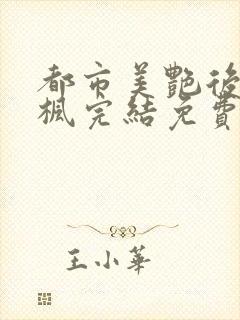 都市美艷後
楓完結免費
王小華